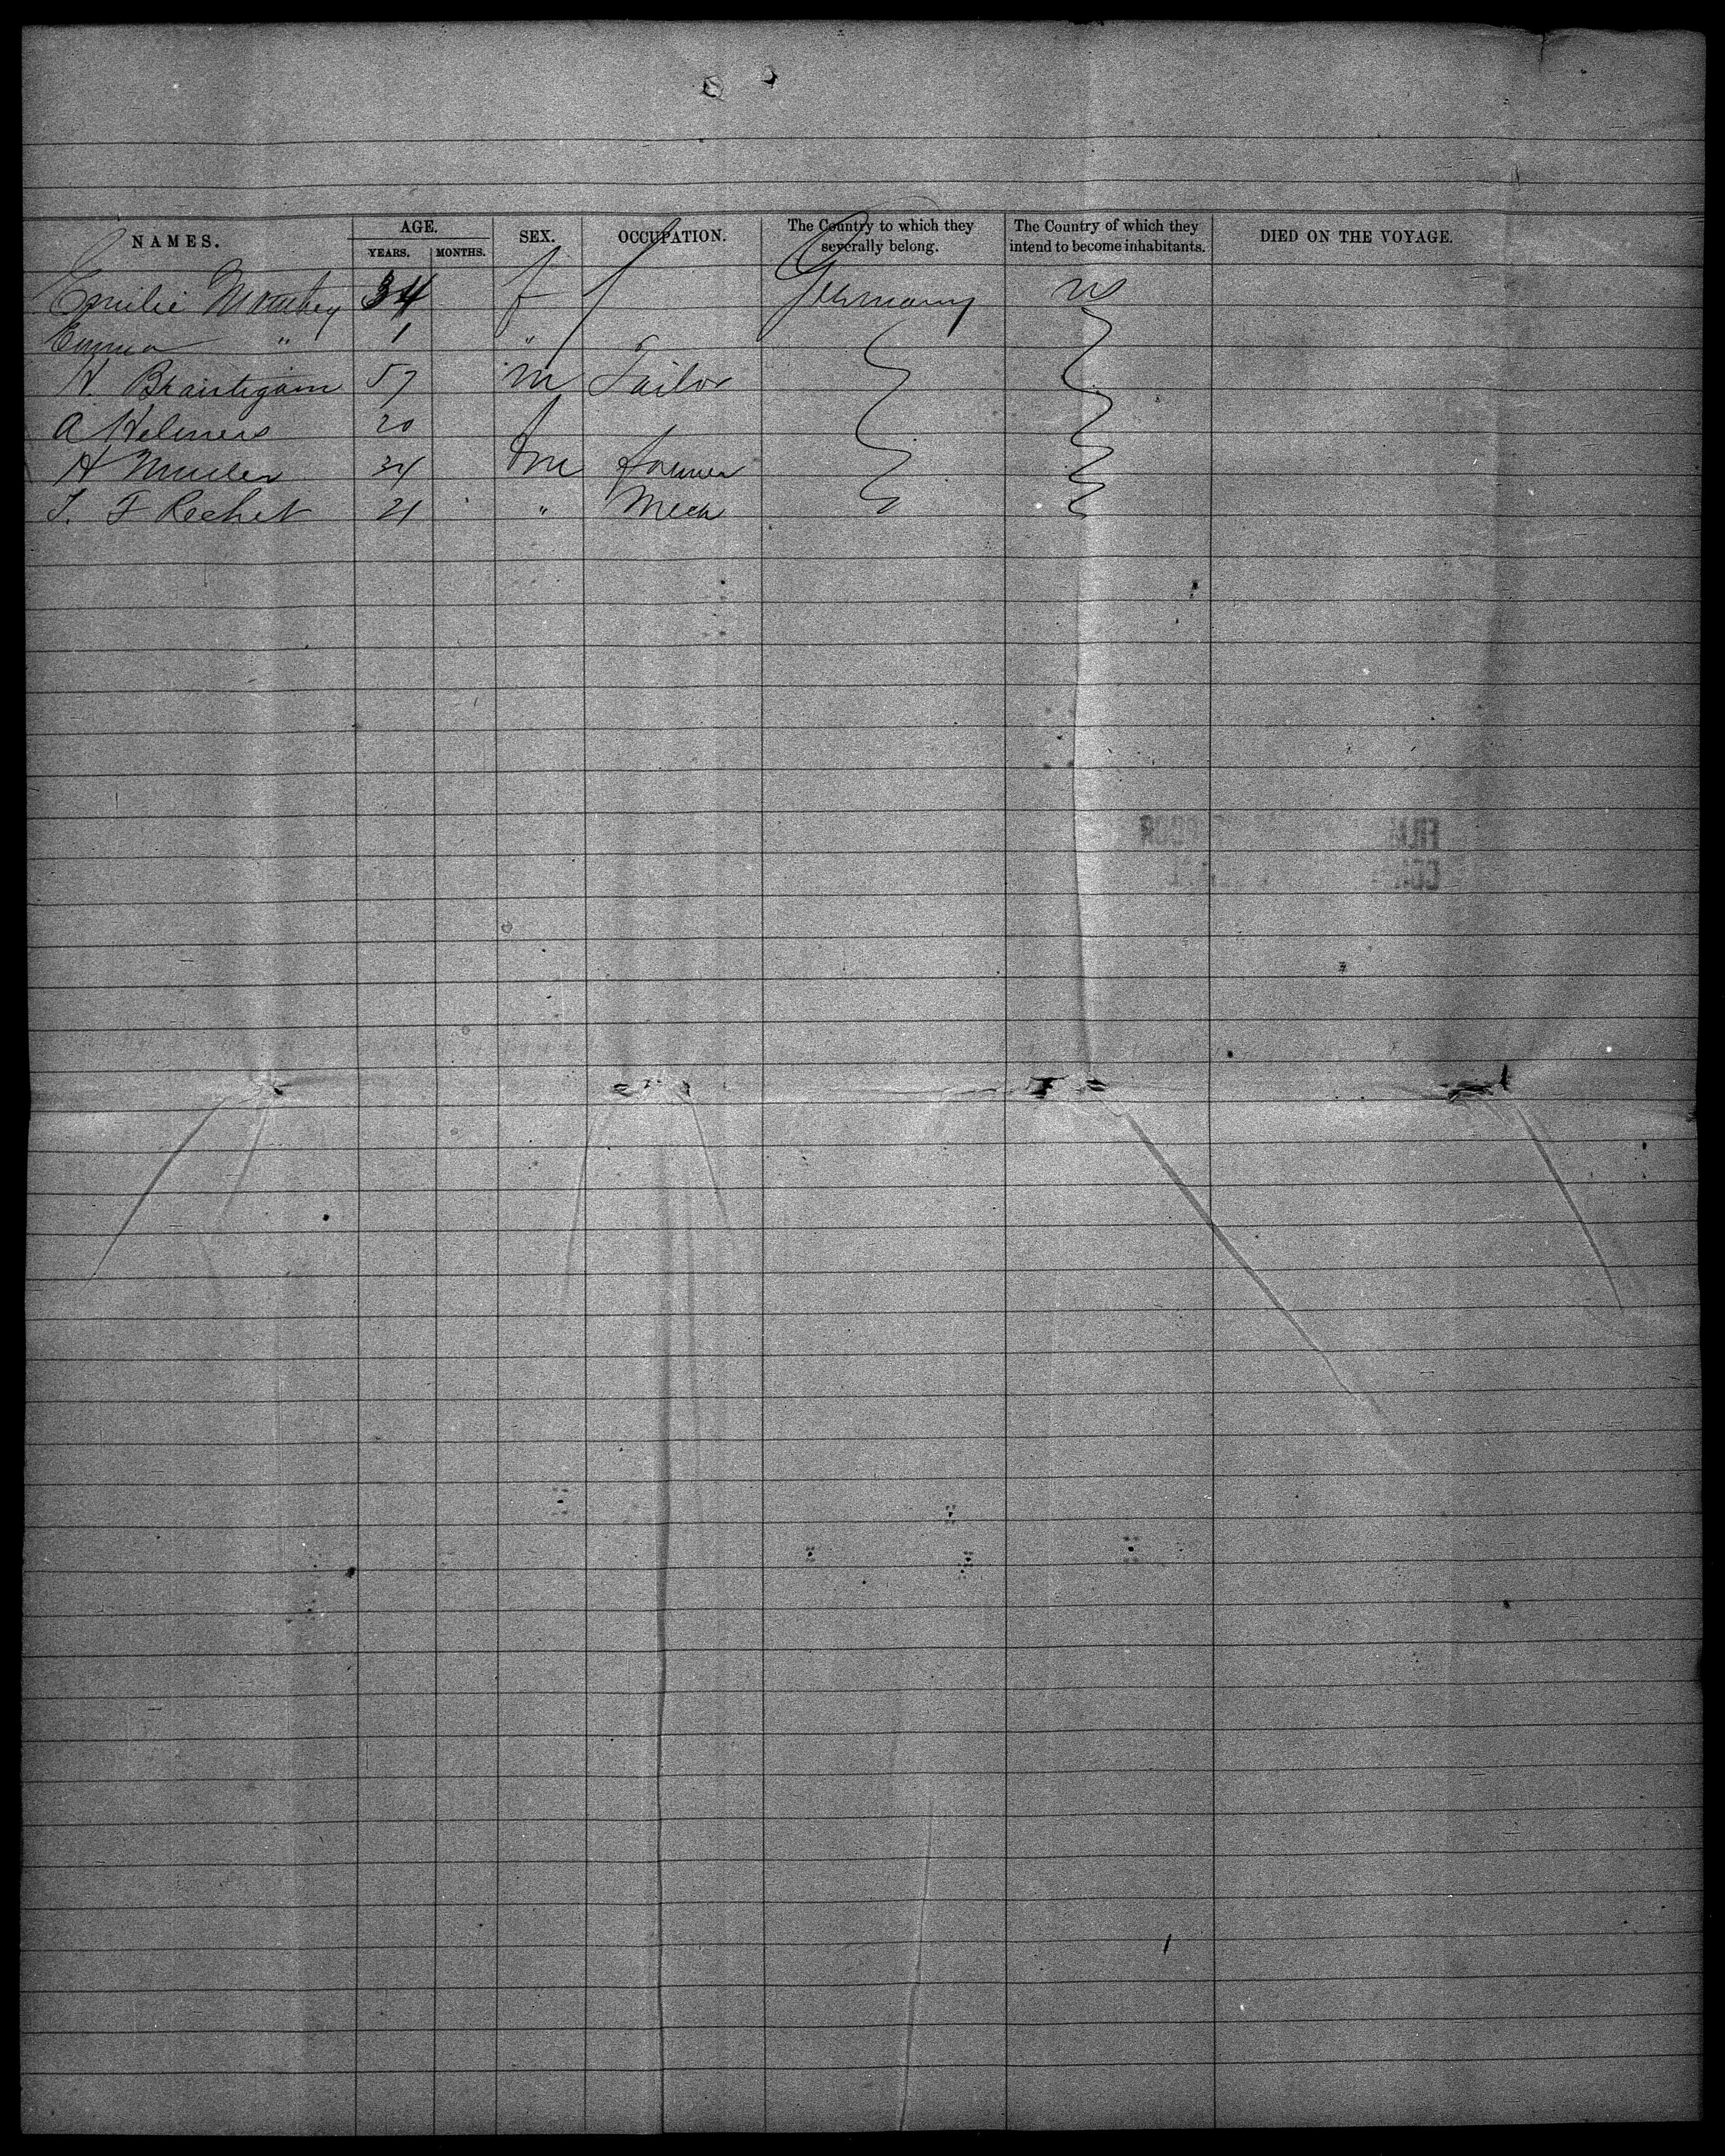 NAMES. AGE. SEX. OCCUPATION. The Country to which they severally belong. The Country of which they intend to become inhabitants. DIED ON THE VOYAGE.
YEARS. MONTHS.
Emilie 34 f Germany US
Emma " 1 "
H. Brautigam 57 m Tailor
A Helmers 20
H Muller 34 m farmer
F Rechet 21 " Mech